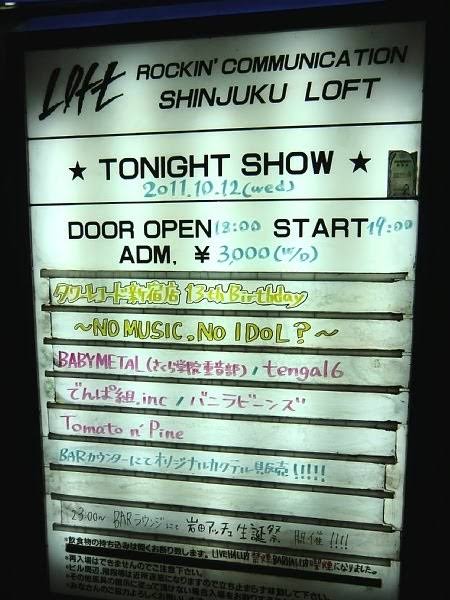 LOFT ROCKIN' COMMUNICATION
SHINJUKU LOFT
★ TONIGHT SHOW ★
2011.10.12(wed)
DOOR OPEN 18:00 START 19:00
ADM. ¥3,000(w/o)
タワーレコード新宿店 13th Birthday
～NO MUSIC, NO IDOL?～
BABYMETAL(さくら学院重音部) / tengal6
でんぱ組.inc / バニラビーンズ
Tomato n' Pine
BARカウンターにてオリジナルカクテル販売!!!!!
23:00～ BARラウンジにて 岩田アッチュ生誕祭 開催!!!!
*飲食物の持ち込みは固くお断り致します。
*再入場はできませんのでご注意下さい。
*ビル周辺、階段等は近隣迷惑になりますので立ち止まらず